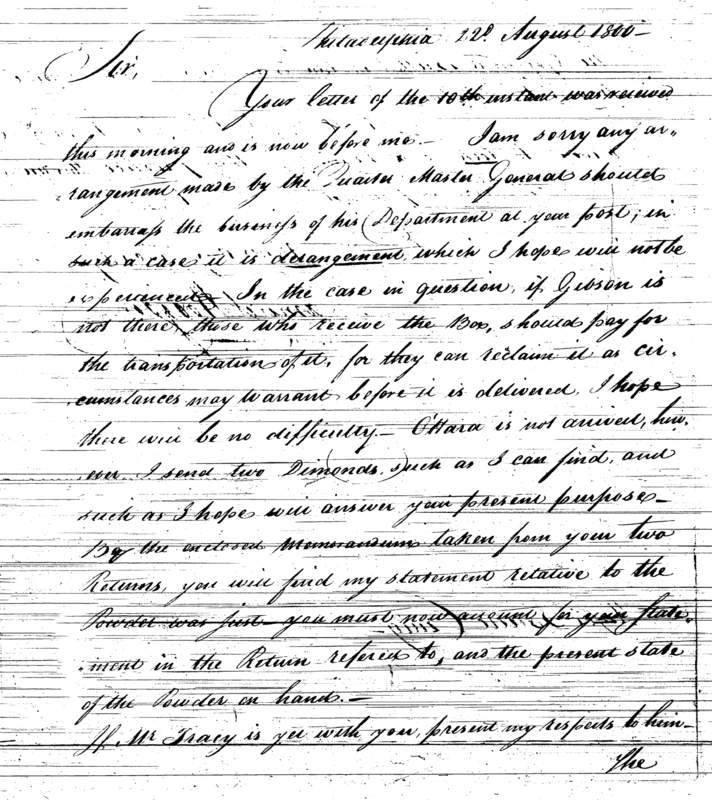 Philadelphia 22d. August 1800-
Sir,
Your letter of the 10th instant was received
this morning and is now before me - I am sorry any ar„
rangement made by the Quarter Master General should
embarrass the business of his Department at your post; in
such a case it is derangement, which I hope will not be
experienced. In the case in question, if Gibson is
not there, those who receive the Box, should pay for
the transportation of it, for they can reclaim it as cir„
cumstances may warrant before it is delivered, I hope
there will be no difficulty - O'Hara is not arrived, how„
ever I send two Dimonds, such as I can find, and
such as I hope will answer your present purpose -
By the enclosed Memorandum taken from your two
Returns, you will find my statement relative to the
Powder was just - you must now account for your State„
ment in the Return refered to, and the present state
of the Powder on hand. -
If Mr Tracy is yet with you, present my respects to him -
The